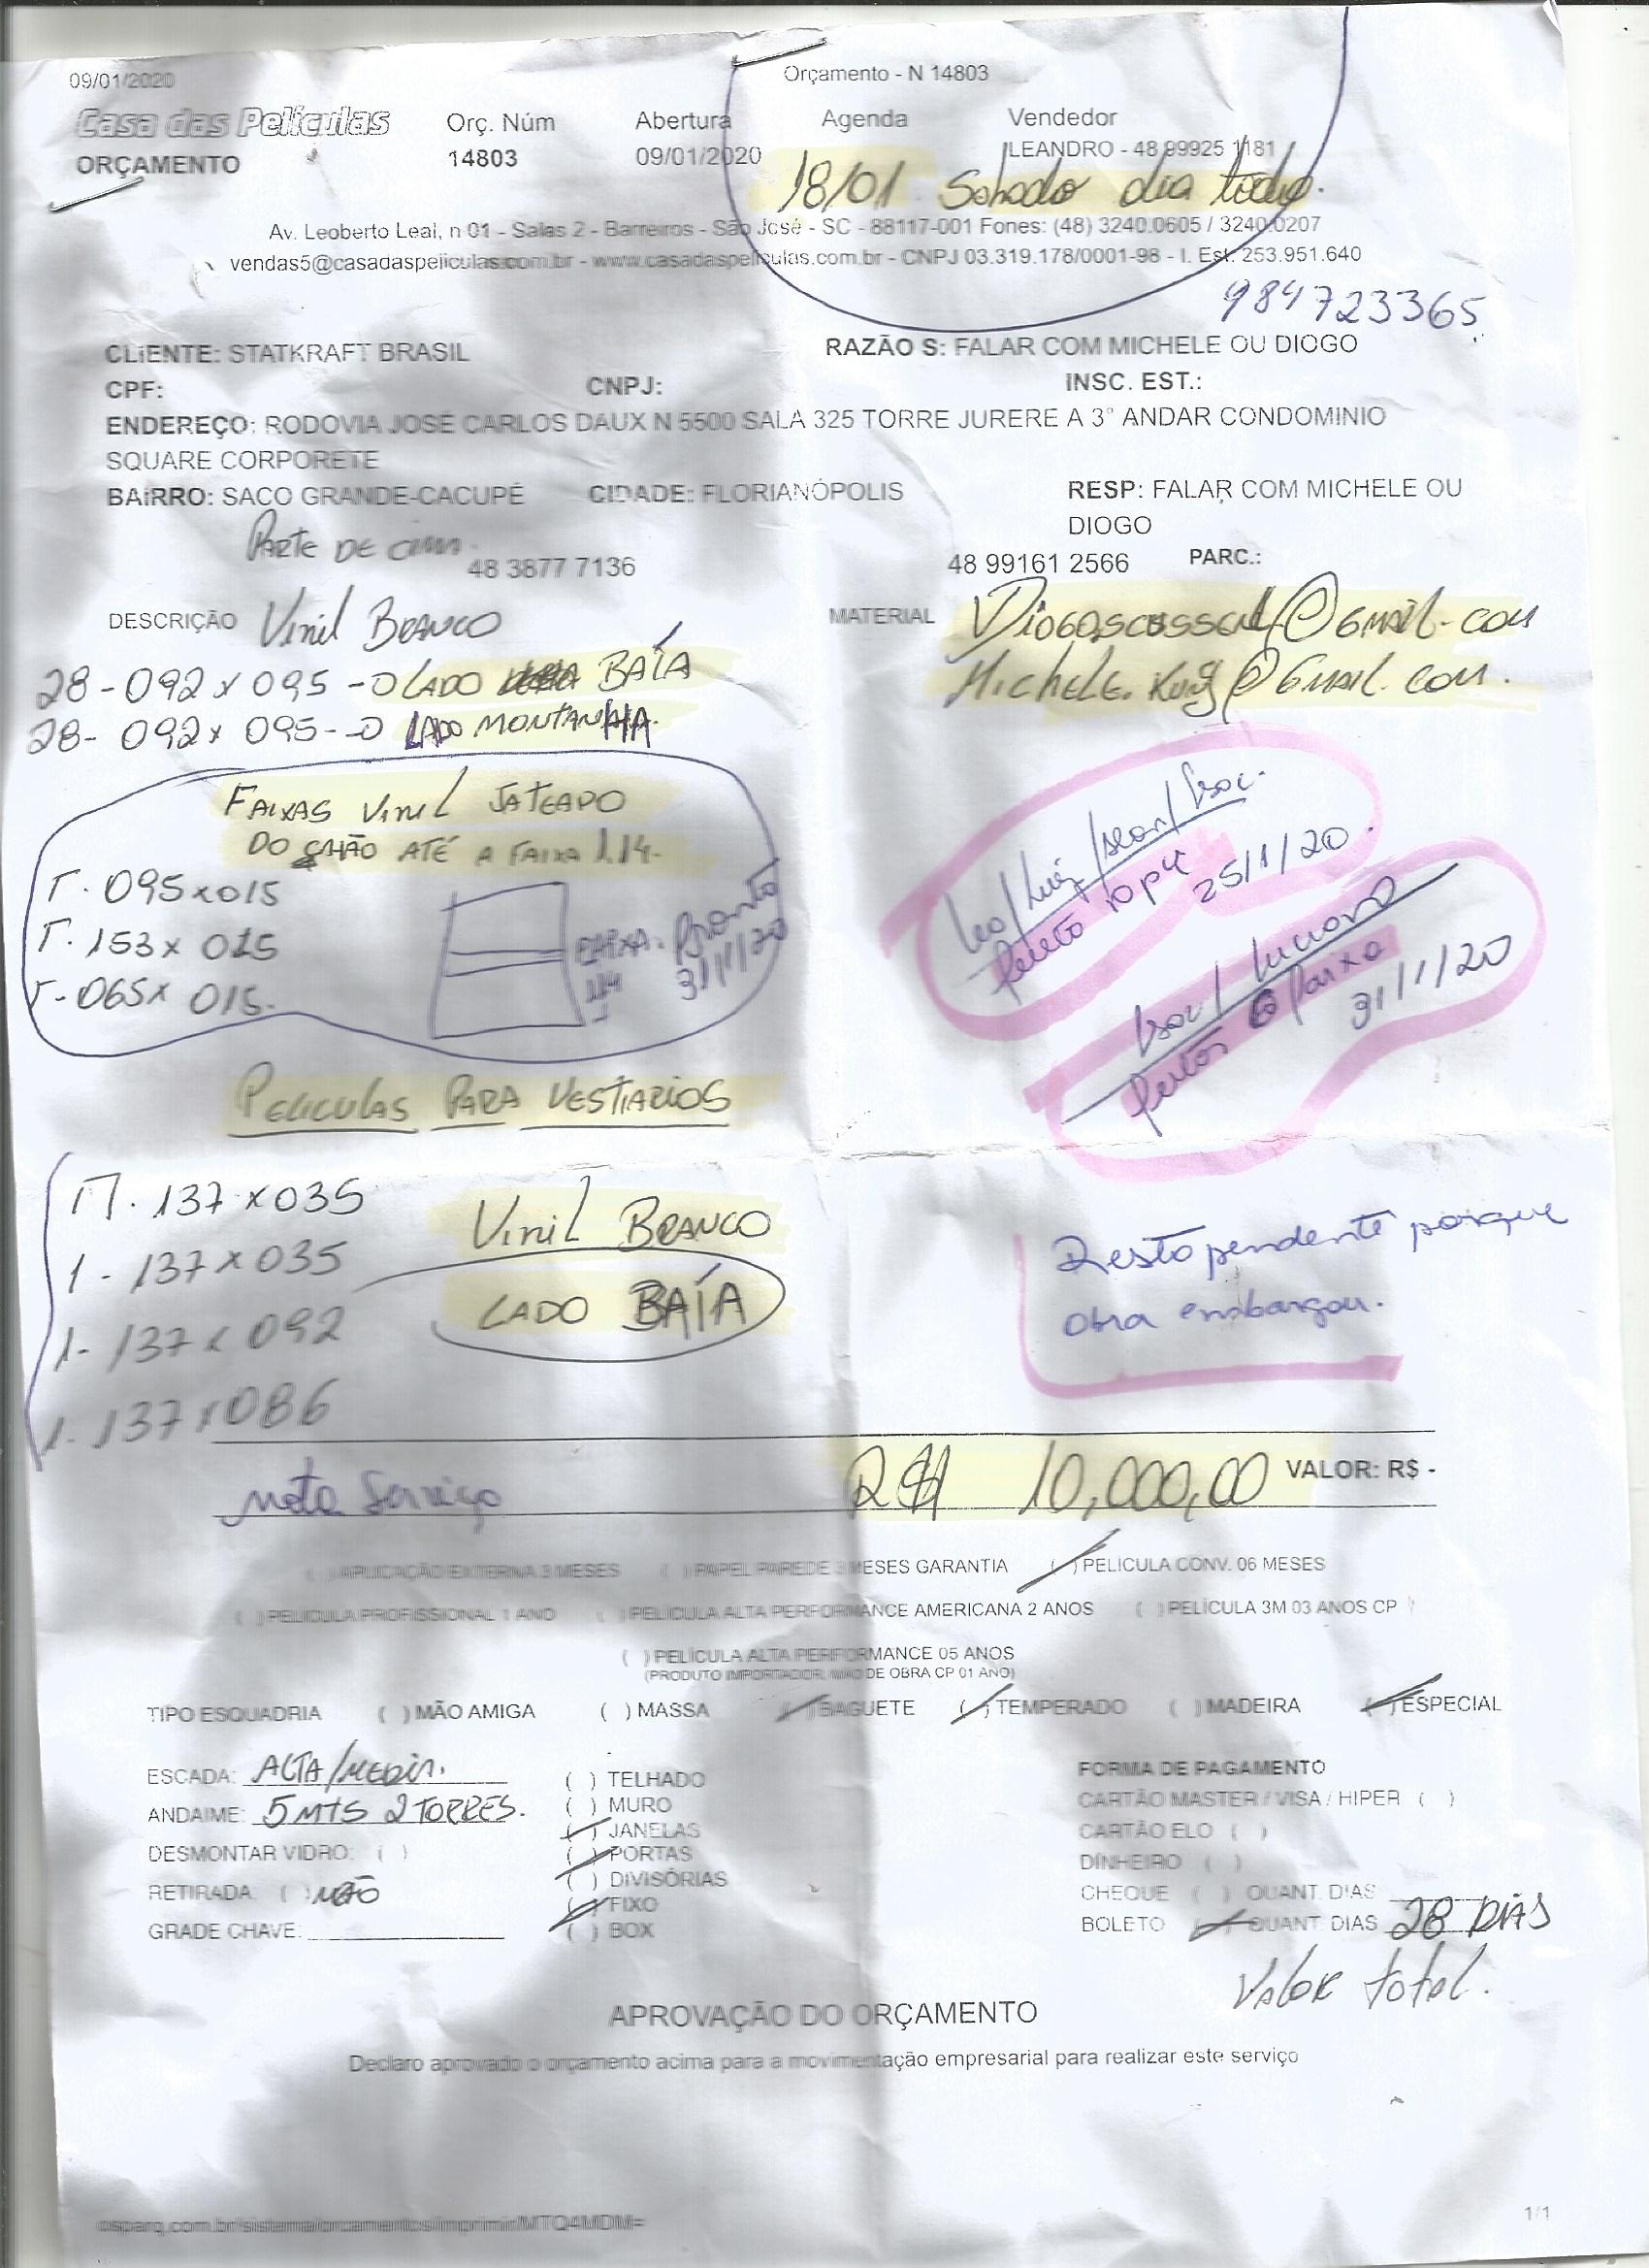 09/01/2020
Orçamento - N 14803
Casa das Películas
ORÇAMENTO
Orç. Núm
14803
Abertura
09/01/2020
Agenda
Vendedor
LEANDRO - 48 99925 1181
18/01 Sabado dia todo.
Av. Leoberto Leal, n 01 - Salas 2 - Barreiros - São José - SC - 88117-001 Fones: (48) 3240.0605 / 3240.0207
vendas5@casadaspeliculas.com.br - www.casadaspeliculas.com.br - CNPJ 03.319.178/0001-98 - I. Est. 253.951.640
984723365
CLIENTE: STATKRAFT BRASIL
RAZÃO S: FALAR COM MICHELE OU DIOGO
CPF:
CNPJ:
INSC. EST.:
ENDEREÇO: RODOVIA JOSÉ CARLOS DAUX N 5500 SALA 325 TORRE JURERE A 3° ANDAR CONDOMINIO
SQUARE CORPORETE
BAIRRO: SACO GRANDE-CACUPÉ
CIDADE: FLORIANÓPOLIS
RESP: FALAR COM MICHELE OU
DIOGO
PARTE DE CIMA
48 3877 7136
48 99161 2566
PARC.:
DESCRIÇÃO
Vinil BRANCO
MATERIAL
@GMAIL.COM
28-092 x 095 - LADO BAÍA
Michele. @GMAIL.com.
28- 092 x 095- LADO MONTANHA.
FAIXAS VINIL JATEADO
DO CHÃO ATÉ A FAIXA 1.14-
095x015
153 x 015
065x 015-
FAIXA.
1.14
Pronto
31/1/20
25/1/20
31/1/20
PELICULAS PARA VESTIARIOS
137 x 035
1 - 137 x 035
1 - 137 x 092
1. 137 x 086
Vinil BRANCO
LADO BAÍA
Resto pendente porque
obra embargou.
nota Serviço
R$ 10,000,00
VALOR: R$ -
( ) APLICAÇÃO EXTERNA 3 MESES ( ) PAPEL PAREDE 3 MESES GARANTIA ( ) PELICULA CONV. 06 MESES
( ) PELICULA PROFISSIONAL 1 ANO ( ) PELÍCULA ALTA PERFORMANCE AMERICANA 2 ANOS ( ) PELÍCULA 3M 03 ANOS CP
( ) PELÍCULA ALTA PERFORMANCE 05 ANOS
(PRODUTO IMPORTADOR, MÃO DE OBRA CP 01 ANO)
TIPO ESQUADRIA ( ) MÃO AMIGA ( ) MASSA ( ) BAGUETE ( ) TEMPERADO ( ) MADEIRA ( ) ESPECIAL
ESCADA: ALTA/MEDIA.
ANDAIME: 5 MTS 2 TORRES.
DESMONTAR VIDRO: ( )
RETIRADA ( ) NÃO
GRADE CHAVE:
( ) TELHADO
( ) MURO
( ) JANELAS
( ) PORTAS
( ) DIVISÓRIAS
( ) FIXO
( ) BOX
FORMA DE PAGAMENTO
CARTÃO MASTER / VISA / HIPER ( )
CARTÃO ELO ( )
DINHEIRO ( )
CHEQUE ( ) QUANT. DIAS
BOLETO ( ) QUANT. DIAS 28 DIAS
VALOR total.
APROVAÇÃO DO ORÇAMENTO
Declaro aprovado o orçamento acima para a movimentação empresarial para realizar este serviço
osparq.com.br/sistema/orcamentos/imprimir/MTQ4MDM=
1/1